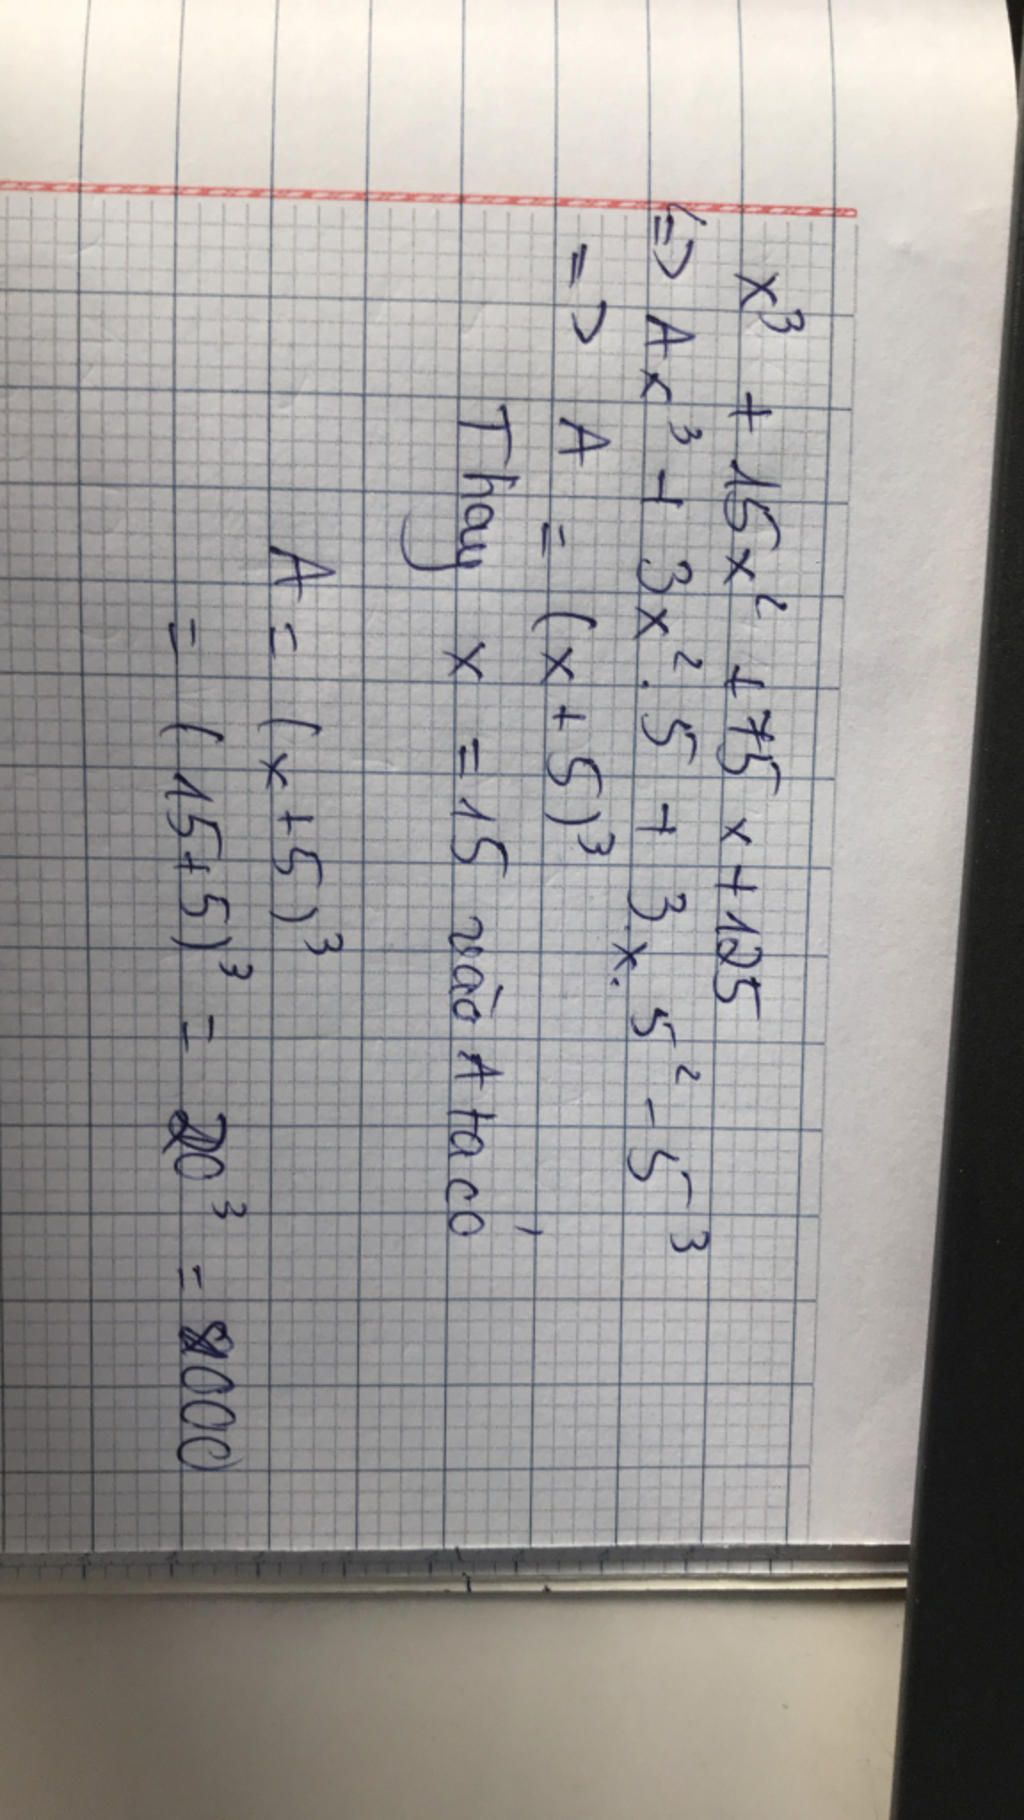 x³ + 15x² + 75x + 125
<=> Ax³ + 3x².5 + 3x.5² - 5³
=> A = (x+5)³
Thay x = 15 vào A ta có
A = (x+5)³
= (15+5)³ = 20³ = 8000